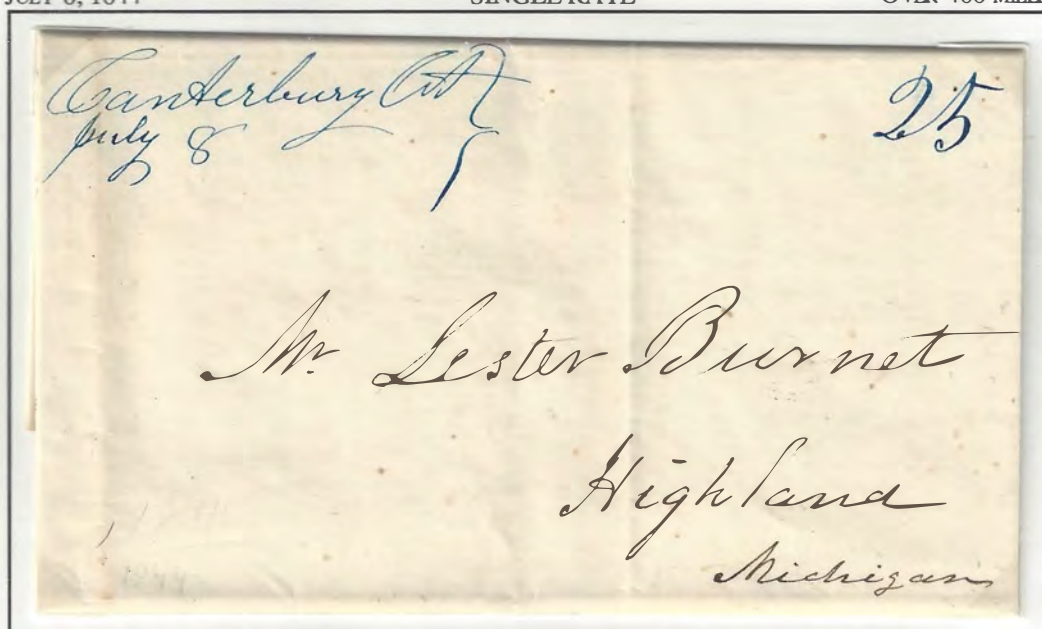 SINGLE RATE
Canterbury Ct
July 8
25
Mr. Lester Burnet
Highland
Michigan